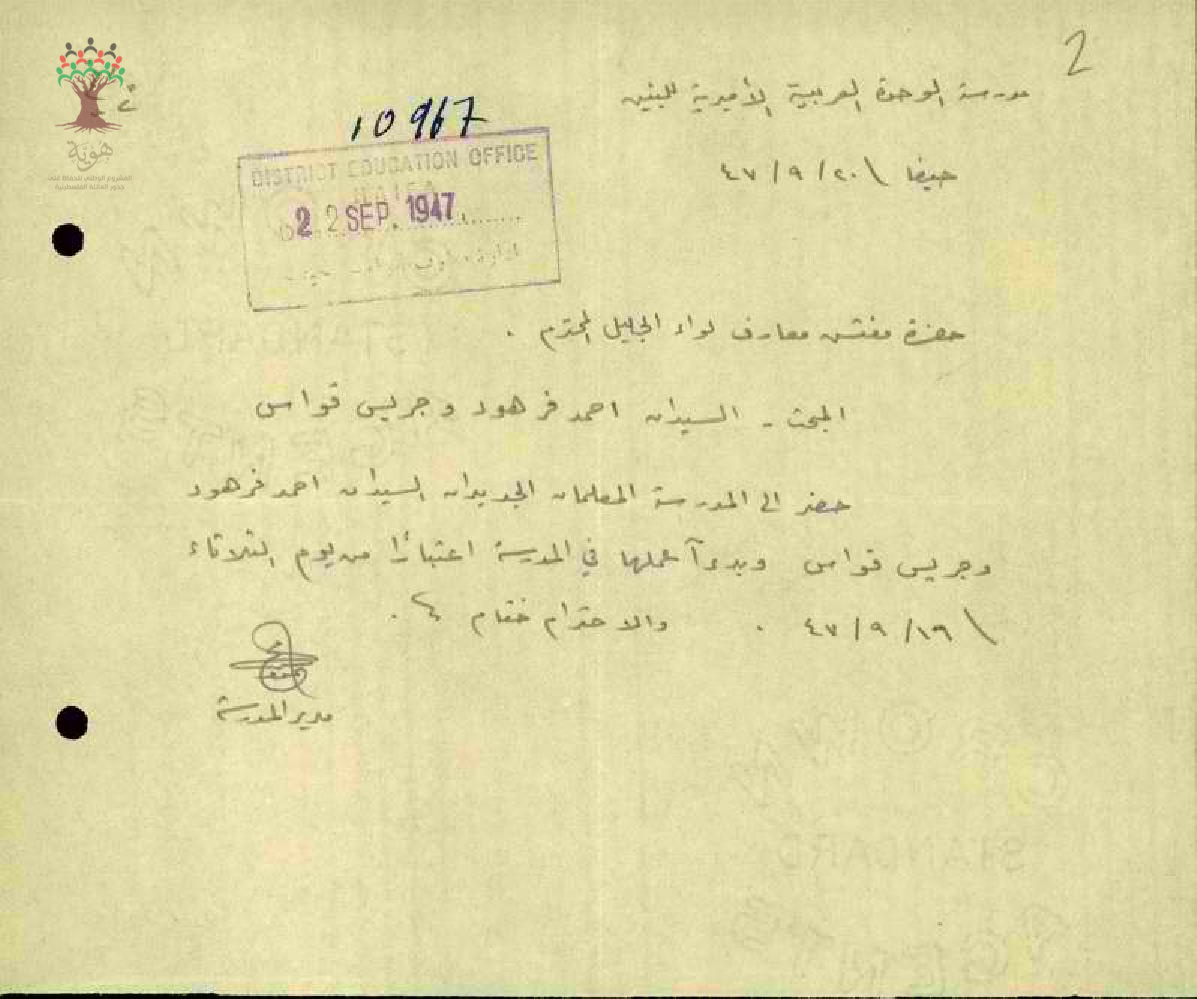 2
مدرسة الوحدة العربية الأميرية للبنين
حيفا ٢٠/٩/٤٧
10967
DISTRICT EDUCATION OFFICE
HAIFA
22 SEP. 1947
هوية
المشروع الوطني للحفاظ على
جذور العائلة الفلسطينية
حضرة مفتش معارف لواء الجليل المحترم .
المبحث - السيدان احمد فرهود وجريس قواس
حضر الى المدرسة المعلمان الجديدان السيدان احمد فرهود
وجريس قواس وبدءآ عملهما في المدرسة اعتبارًا من يوم الثلاثاء
١٩/٩/٤٧ . والاحترام ختام .
مدير المدرسة
STANDARD